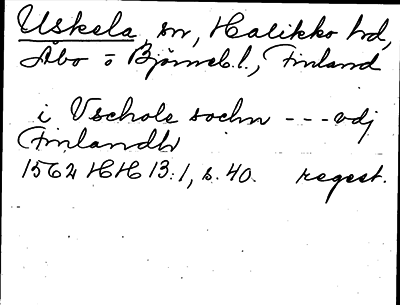 Uskela, sn, Halikko hd,
Åbo o Björneb. l., Finland
i Vschole sochn --- vdj
Finlandh
1562 HH 13:1, s. 40. regest.